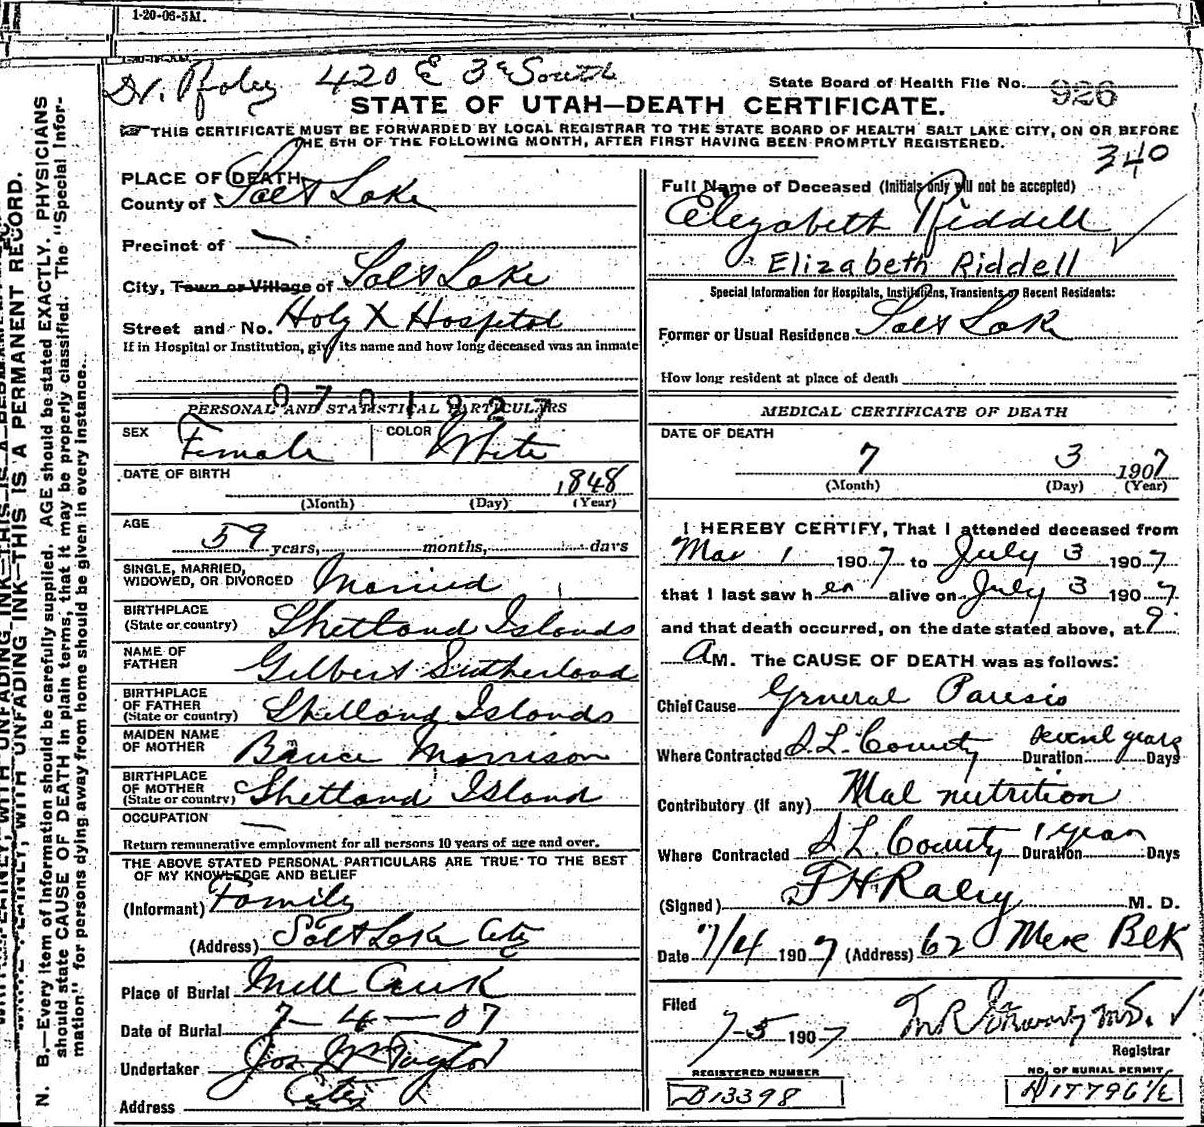 1-20-06-5M.
Dr. 420 E 3 South
State Board of Health File No. 926
STATE OF UTAH—DEATH CERTIFICATE.
THIS CERTIFICATE MUST BE FORWARDED BY LOCAL REGISTRAR TO THE STATE BOARD OF HEALTH SALT LAKE CITY, ON OR BEFORE
THE 5TH OF THE FOLLOWING MONTH, AFTER FIRST HAVING BEEN PROMPTLY REGISTERED.
340
PLACE OF DEATH
County of Salt Lake
Precinct of —
City, Town or Village of Salt Lake
Street and No. Holy X Hospital
If in Hospital or Institution, give its name and how long deceased was an inmate
0701927
PERSONAL AND STATISTICAL PARTICULARS
SEX Female COLOR White
DATE OF BIRTH 1848
(Month) (Day) (Year)
AGE 59 years, months, days
SINGLE, MARRIED,
WIDOWED, OR DIVORCED Married
BIRTHPLACE
(State or country) Shetland Islands
NAME OF
FATHER Gilbert Sutherland
BIRTHPLACE
OF FATHER
(State or country) Shetland Islands
MAIDEN NAME
OF MOTHER Morrison
BIRTHPLACE
OF MOTHER
(State or country) Shetland Island
OCCUPATION —
Return remunerative employment for all persons 10 years of age and over.
THE ABOVE STATED PERSONAL PARTICULARS ARE TRUE TO THE BEST
OF MY KNOWLEDGE AND BELIEF
(Informant) Family
(Address) Salt Lake City
Place of Burial Mill Creek
Date of Burial 7—4—07
Undertaker Jos Wm Taylor
Address City
Full Name of Deceased (Initials only will not be accepted)
Elizabeth Riddell
Elizabeth Riddell
Special Information for Hospitals, Institutions, Transients or Recent Residents:
Former or Usual Residence Salt Lake
How long resident at place of death
MEDICAL CERTIFICATE OF DEATH
DATE OF DEATH
7 3 1907
(Month) (Day) (Year)
I HEREBY CERTIFY, That I attended deceased from
Mar 1 1907 to July 3 1907
that I last saw her alive on July 3 1907
and that death occurred, on the date stated above, at 9
A M. The CAUSE OF DEATH was as follows:
Chief Cause General Paresis
Where Contracted S.L. County Duration several years Days
Contributory (if any) Mal nutrition
Where Contracted S L. County Duration 1 year Days
(Signed) F H Raley M. D.
Date 7/4 1907 (Address) 62 Merc Blk
Filed
7-5 1907 M.D.
Registrar
REGISTERED NUMBER
D13398
NO. OF BURIAL PERMIT
D17796½
N. B.—Every item of information should be carefully supplied. AGE should be stated EXACTLY. PHYSICIANS
should state CAUSE OF DEATH in plain terms, that it may be properly classified. The "Special Infor-
mation" for persons dying away from home should be given in every instance.
WITH UNFADING INK—THIS IS A PERMANENT RECORD.